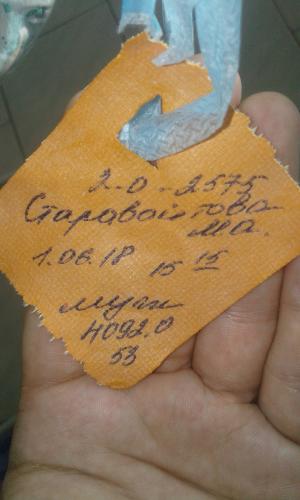 2-0-2575
Старовойтова-
ма.
1.06.18 15 15
мужн
4092.0
53